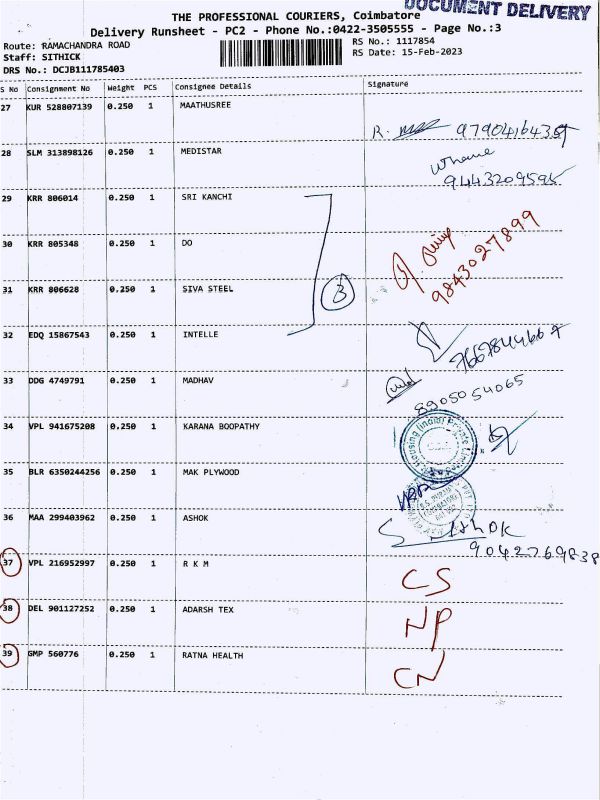 DOCUMENT DELIVERY
THE PROFESSIONAL COURIERS, Coimbatore
Delivery Runsheet - PC2 - Phone No.:0422-3505555 - Page No.:3
Route: RAMACHANDRA ROAD
RS No.: 1117854
Staff: SITHICK
RS Date: 15-Feb-2023
DRS No.: DCJB111785403
S No Consignment No Weight PCS Consignee Details Signature
27 KUR 528807139 0.250 1 MAATHUSREE
R. 9790416435
28 SLM 313898126 0.250 1 MEDISTAR
9443209595
29 KRR 806014 0.250 1 SRI KANCHI
30 KRR 805348 0.250 1 DO
9843027899
31 KRR 806628 0.250 1 SIVA STEEL
3
32 EDQ 15867543 0.250 1 INTELLE
33 DDG 4749791 0.250 1 MADHAV
8905054065
34 VPL 941675208 0.250 1 KARANA BOOPATHY
Housing (India) Private
35 BLR 6350244256 0.250 1 MAK PLYWOOD
36 MAA 299403962 0.250 1 ASHOK
9042769838
37 VPL 216952997 0.250 1 R K M
CS
38 DEL 901127252 0.250 1 ADARSH TEX
NP
39 GMP 560776 0.250 1 RATNA HEALTH
CN